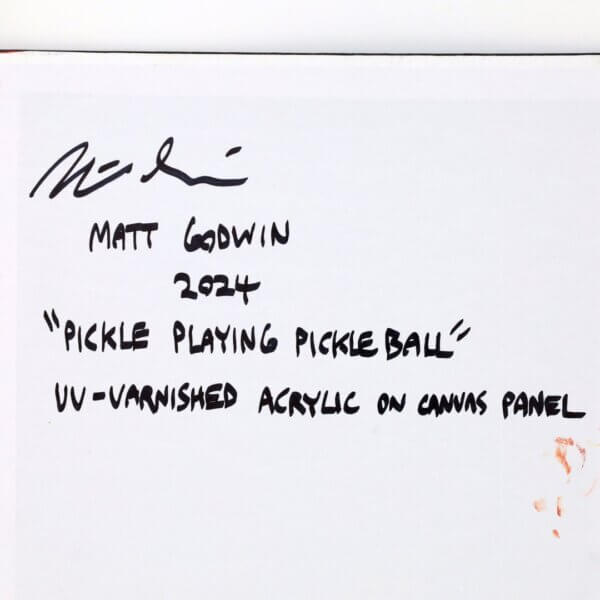 MATT GODWIN
2024
"PICKLE PLAYING PICKLEBALL"
UV-VARNISHED ACRYLIC ON CANVAS PANEL